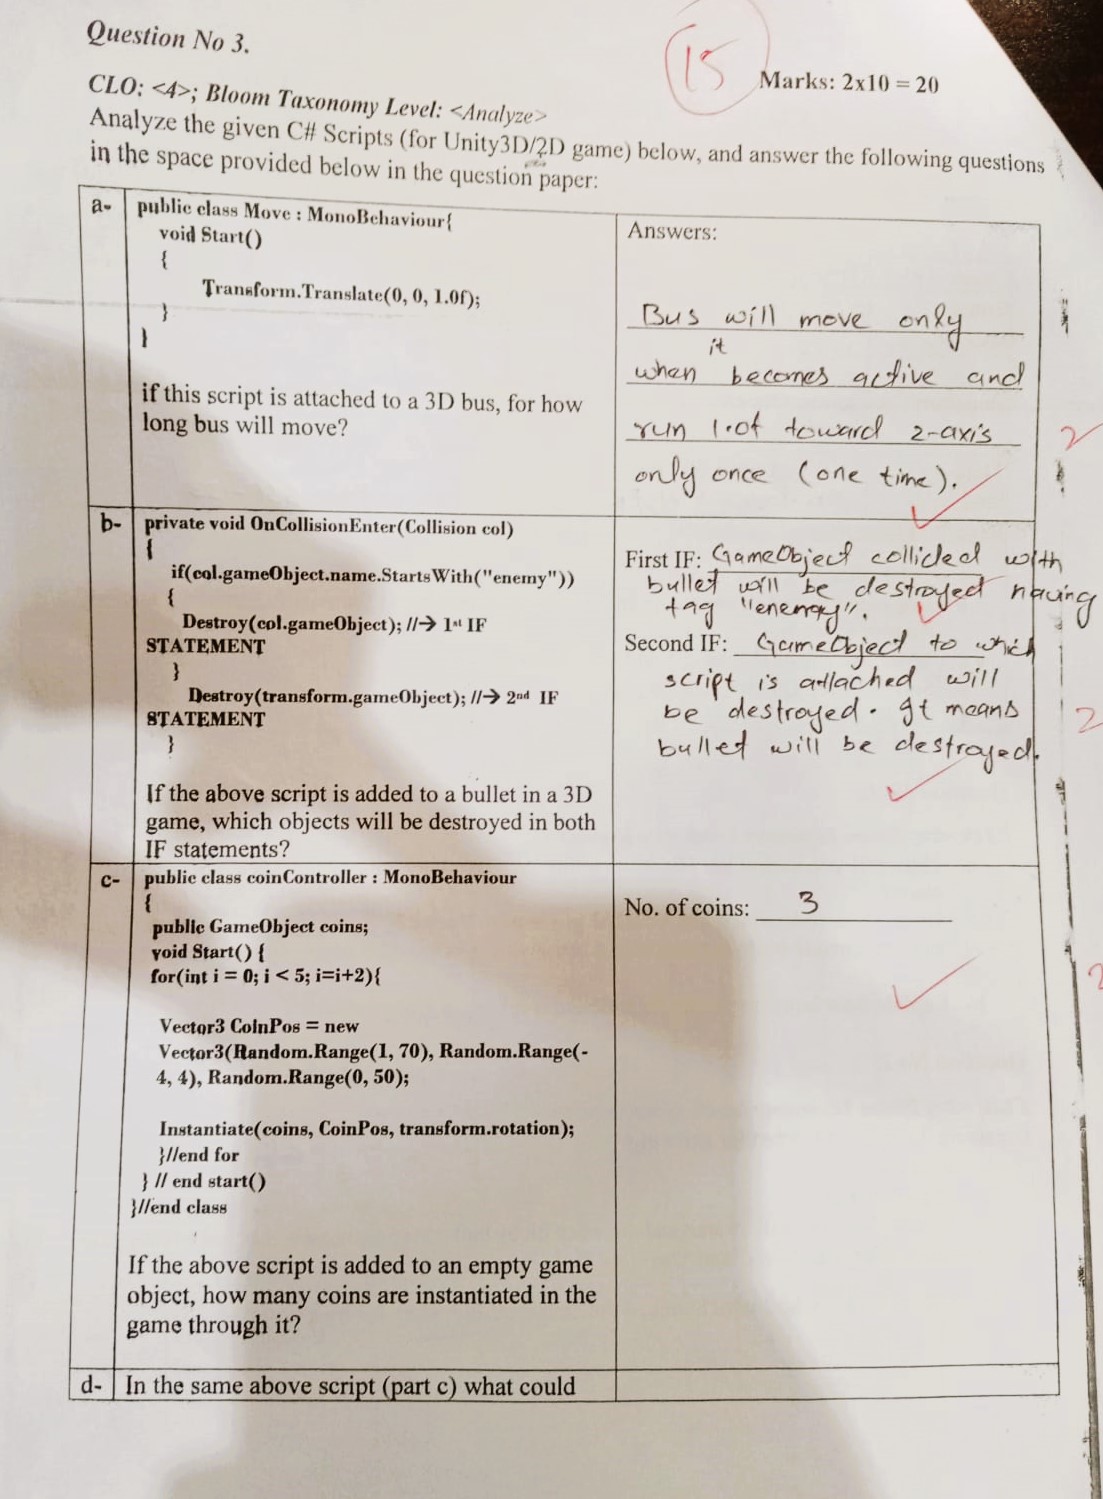 Question No 3.
15
Marks: 2x10 = 20
CLO: <4>; Bloom Taxonomy Level: <Analyze>
Analyze the given C# Scripts (for Unity3D/2D game) below, and answer the following questions
in the space provided below in the question paper:
a-
public class Move : MonoBehaviour{
void Start()
{
Transform.Translate(0, 0, 1.0f);
}
}
if this script is attached to a 3D bus, for how
long bus will move?
Answers:
Bus will move only
it
when becomes active and
run 1.0f toward z-axis
only once (one time).
2
b-
private void OnCollisionEnter(Collision col)
{
if(col.gameObject.name.StartsWith("enemy"))
{
Destroy(col.gameObject); //→ 1st IF
STATEMENT
}
Destroy(transform.gameObject); //→ 2nd IF
STATEMENT
}
If the above script is added to a bullet in a 3D
game, which objects will be destroyed in both
IF statements?
First IF: GameObject collided with
bullet will be destroyed having
tag "enemy".
Second IF: GameObject to which
script is attached will
be destroyed. It means
bullet will be destroyed.
2
c-
public class coinController : MonoBehaviour
{
public GameObject coins;
void Start() {
for(int i = 0; i < 5; i=i+2){
Vector3 CoinPos = new
Vector3(Random.Range(1, 70), Random.Range(-
4, 4), Random.Range(0, 50);
Instantiate(coins, CoinPos, transform.rotation);
}//end for
} // end start()
}//end class
If the above script is added to an empty game
object, how many coins are instantiated in the
game through it?
No. of coins: 3
2
d-
In the same above script (part c) what could